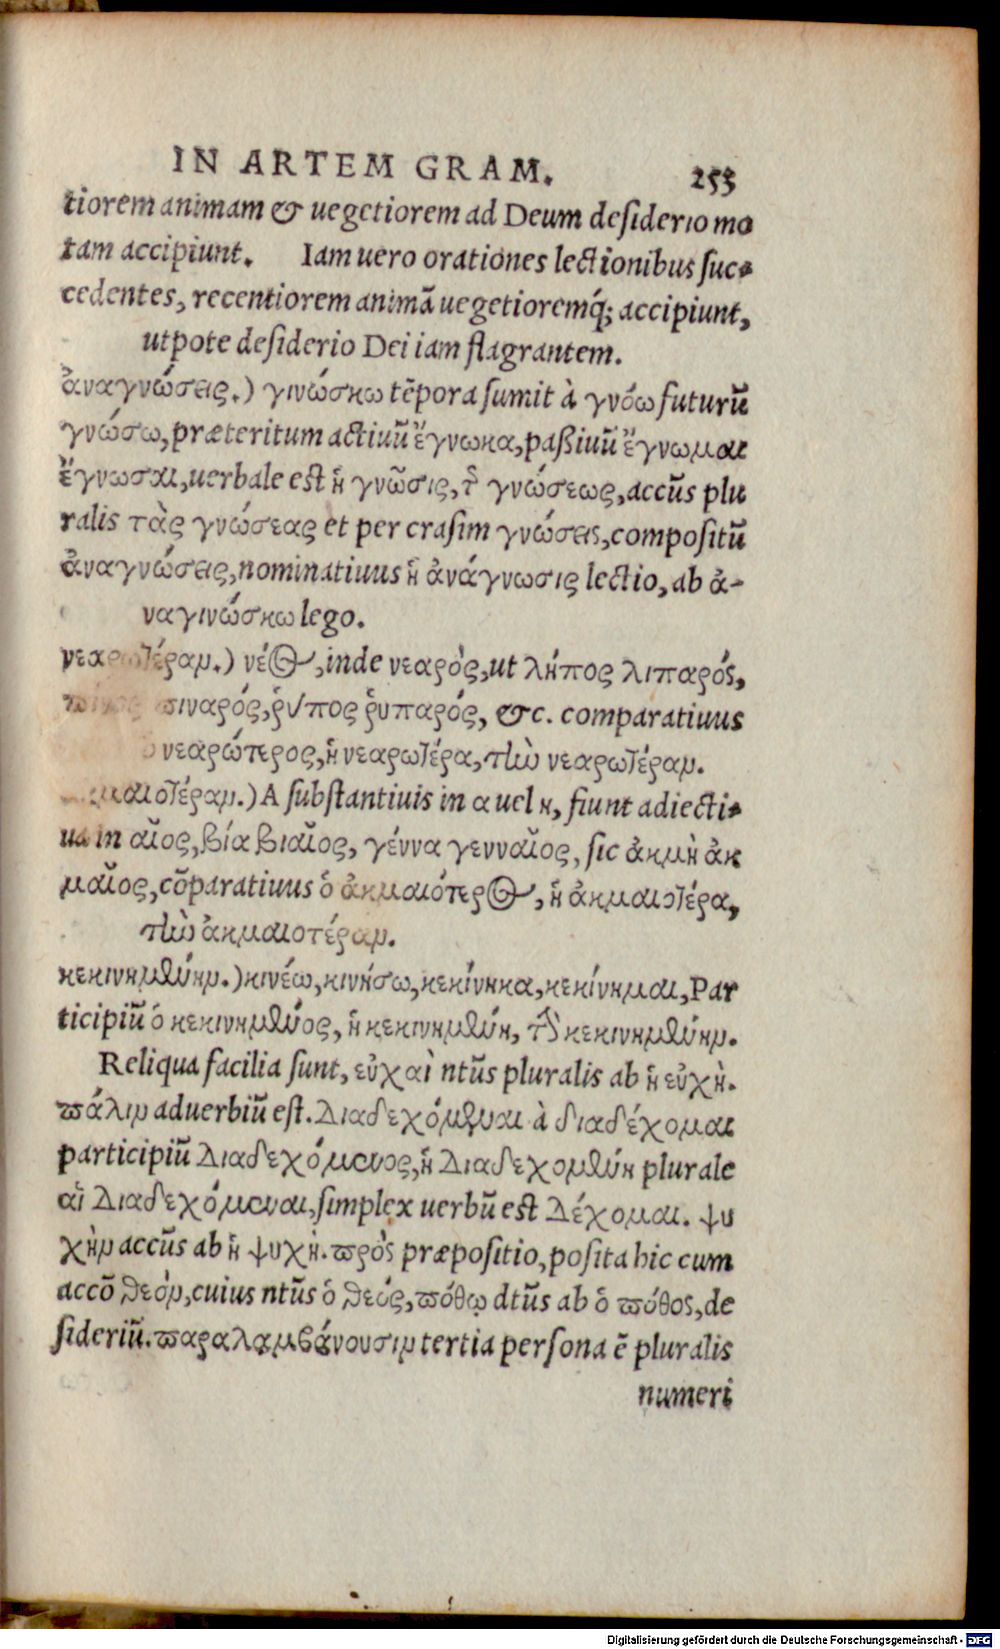 IN ARTEM GRAM. 253
tiorem animam & uegetiorem ad Deum desiderio mo
tam accipiunt. Iam uero orationes lectionibus suc-
cedentes, recentiorem animā uegetioremq́; accipiunt,
utpote desiderio Dei iam flagrantem.
ἀναγνώσεις.) γινώσκω tēpora sumit à γνόω futurū
γνώσω, præteritum actiuū ἔγνωκα, paßiuū ἔγνωμαι
ἔγνωσαι, uerbale est ἡ γνῶσις, τ͂ γνώσεως, accūs plu
ralis τὰς γνώσεας et per crasim γνώσεις, compositū
ἀναγνώσεις, nominatiuus ἡ ἀνάγνωσις lectio, ab ἀ-
ναγινώσκω lego.
νεαρωτέραν.) νέος, inde νεαρὸς, ut λήπος λιπαρός,
πίνος πιναρός, ῥύπος ῥυπαρός, &c. comparatiuus
ὁ νεαρώτερος, ἡ νεαρωτέρα, τὴν νεαρωτέραν.
μαιοτέραν.) A substantiuis in α uel η, fiunt adiecti-
ua in αῖος, βία βιαῖος, γέννα γενναῖος, sic ἀκμὴ ἀκ
μαῖος, cōparatiuus ὁ ἀκμαιότερος, ἡ ἀκμαιοτέρα,
τὴν ἀκμαιοτέραν.
κεκινημένην.) κινέω, κινήσω, κεκίνηκα, κεκίνημαι, Par
ticipiū ὁ κεκινημένος, ἡ κεκινημένη, τὴν κεκινημένην.
Reliqua facilia sunt, εὐχαὶ ntūs pluralis ab ἡ εὐχὴ.
πάλιν aduerbiū est. Διαδεχόμεναι à διαδέχομαι
participiū Διαδεχόμενος, ἡ Διαδεχομένη plurale
αἱ Διαδεχόμεναι, simplex uerbū est Δέχομαι. ψυ
χὴν accūs ab ἡ ψυχὴ. πρὸς præpositio, posita hic cum
accō θεόν, cuius ntūs ὁ θεός, πόθῳ dtūs ab ὁ πόθος, de
sideriū. παραλαμβάνουσιν tertia persona ē pluralis
numeri
Digitalisierung gefördert durch die Deutsche Forschungsgemeinschaft - DFG